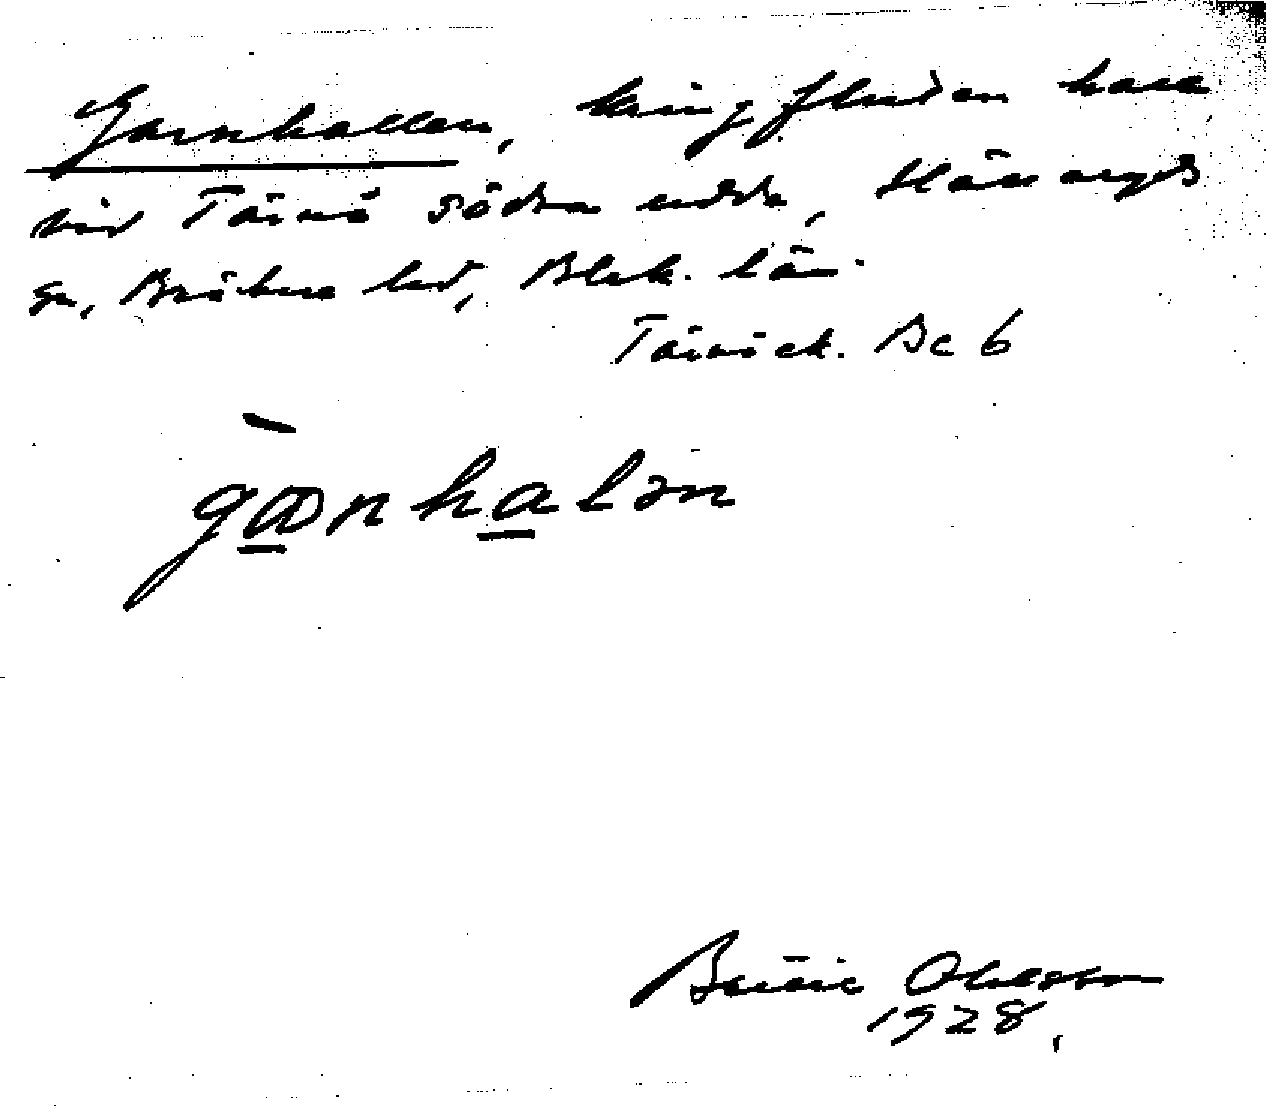 Garnhallen, kringfluten hall
vid Tärnö södra udde, Hällaryds
sn, Bräkne hd, Blek. län.
Tärnö ek. Bc 6
gaʀnhalən
Ohlsson
1928.